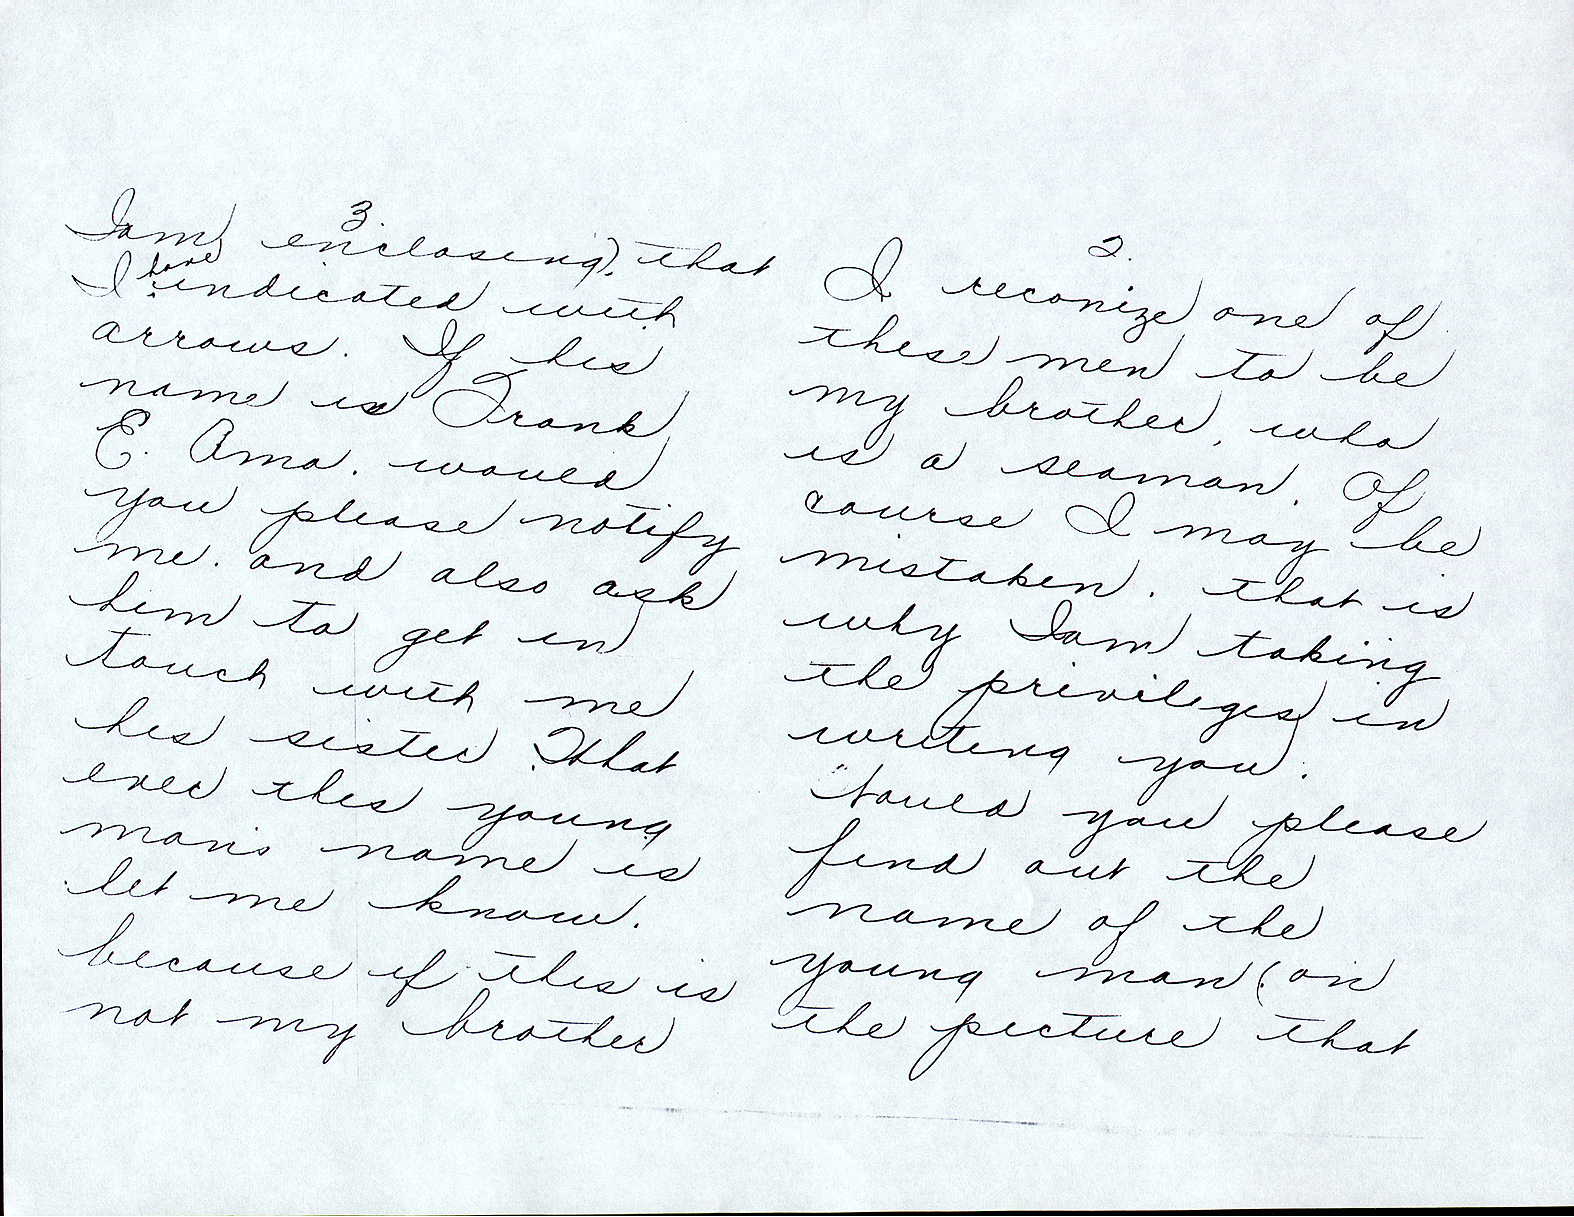 2.
I reconize one of
these men to be
my brother, who
is a seaman. Of
course I may be
mistaken. that is
why Iam taking
the privileges in
writing you.
Would you please
find out the
name of the
young man (on
the picture that
3.
Iam enclosing). that
I have indicated with
arrows. If his
name is Frank
E. Ama. would
you please notify
me. and also ask
him to get in
touch with me
his sister. What
ever this young
man's name is
let me know.
because if this is
not my brother